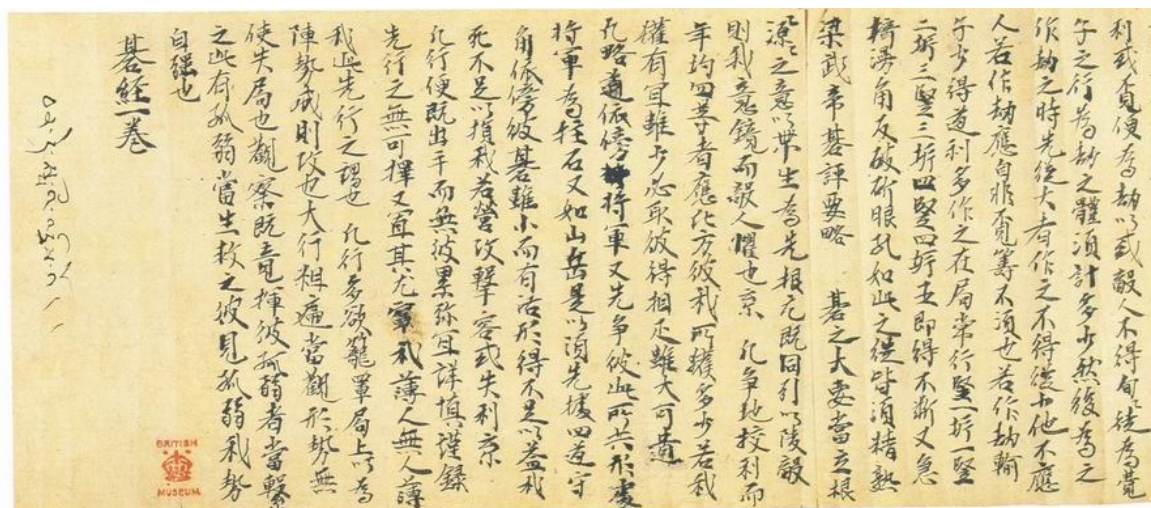 利或覓便為劫以或敵人不得自徒為覓
子之行為劫之體須計多少然後為之
作劫之時先從大者作之不得從少他不應
人若作劫應自非覓籌不須也若作劫輸
子少得道利多作之在局常行竪一拆一竪
二拆三竪三拆四竪四拆五即得不斷又急
撟湧角反破斫眼孔如此之從皆須精熟
梁武帝碁評要略 碁之大要當立根
源之意以帶生為先根元既固引以陵敵
則我意鏡而敵人懼也京 凡爭地校利而
年均四等者應什方彼我所獲多少若我
獲有宜雖少必取彼得相匹雖大可遺
凡略道依傍將軍又先爭彼此所共形處
將軍為柱石又如山岳是以須先據四道守
角依傍彼碁雖小而有活形得不足以益我
死不足以損我若營攻擊容或失利京
凡行便既出手而無彼累弥宜詳填謹錄
先行之無可擇又宜其尤我薄人無人薄
我此先行之謂也 凡行多欲籠罩局上以為
陣勢成則攻也大行粗遍當觀形勢無
使失局也觀察既竟揮彼孤弱者當擊
之此有孤弱當生救之彼見孤弱我勢
自強也
碁經一卷
BRITISH
MUSEUM